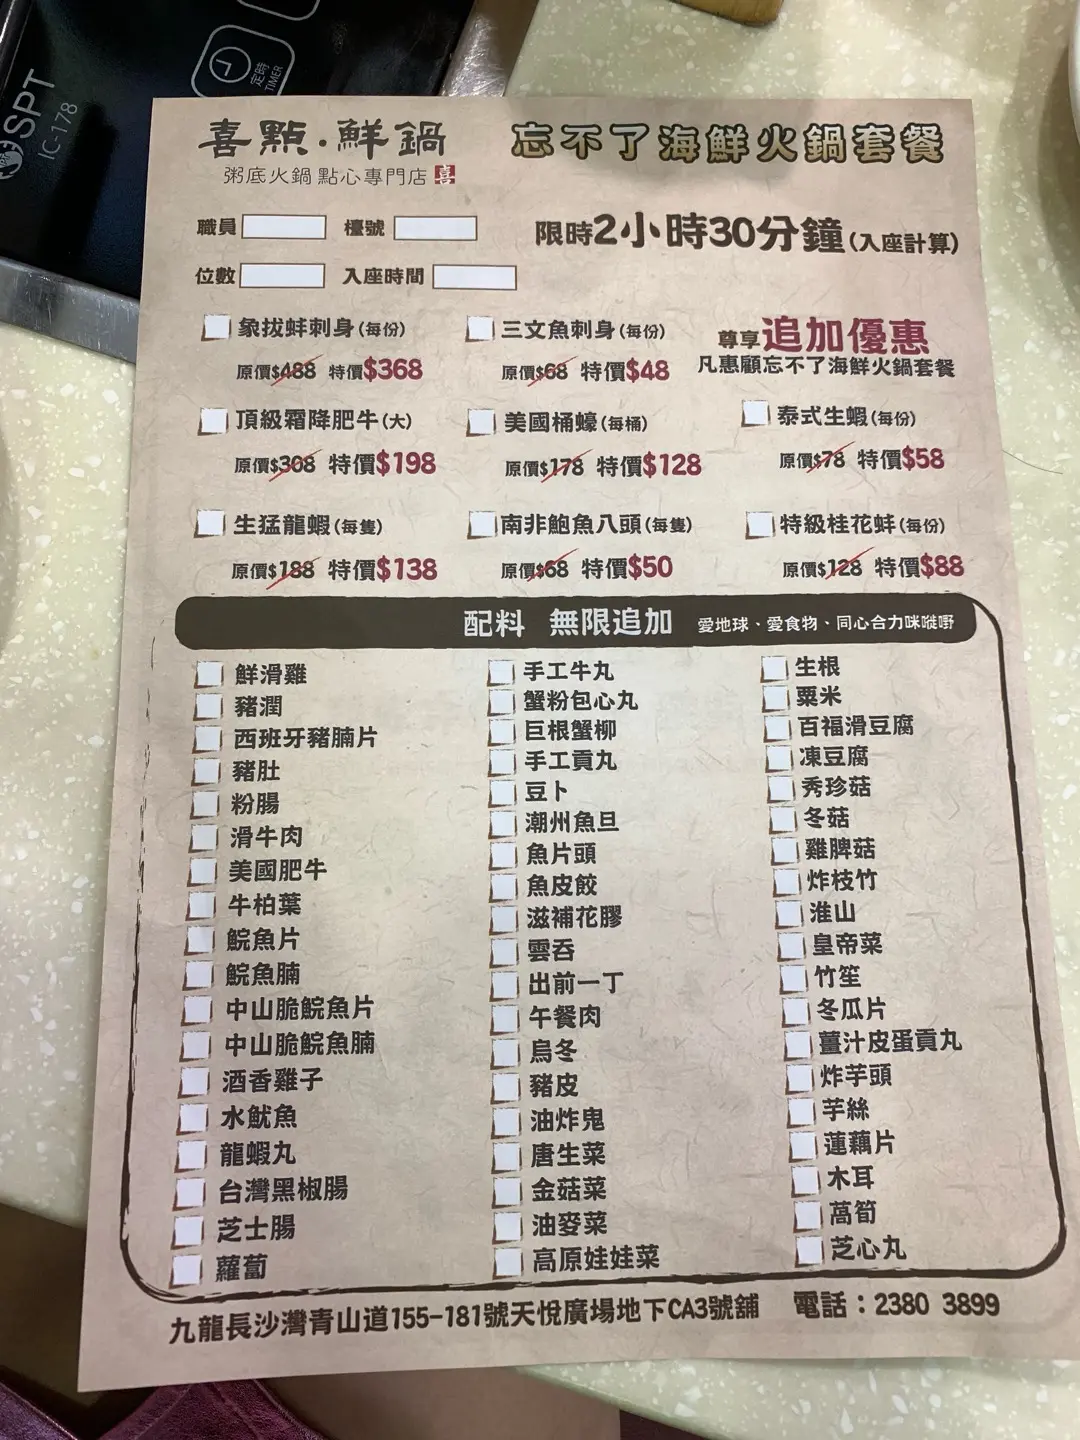 SPT
IC-178
定時
TIMER
喜點·鮮鍋
粥底火鍋 點心專門店 喜
忘不了海鮮火鍋套餐
職員 檯號
限時2小時30分鐘(入座計算)
位數 入座時間
象拔蚌刺身(每份)
原價$488 特價$368
三文魚刺身(每份)
原價$68 特價$48
尊享追加優惠
凡惠顧忘不了海鮮火鍋套餐
頂級霜降肥牛(大)
原價$308 特價$198
美國桶蠔(每桶)
原價$178 特價$128
泰式生蝦(每份)
原價$78 特價$58
生猛龍蝦(每隻)
原價$188 特價$138
南非鮑魚八頭(每隻)
原價$68 特價$50
特級桂花蚌(每份)
原價$128 特價$88
配料 無限追加 愛地球、愛食物、同心合力咪嘥嘢
鮮滑雞
豬潤
西班牙豬腩片
豬肚
粉腸
滑牛肉
美國肥牛
牛柏葉
鯇魚片
鯇魚腩
中山脆鯇魚片
中山脆鯇魚腩
酒香雞子
水魷魚
龍蝦丸
台灣黑椒腸
芝士腸
蘿蔔
手工牛丸
蟹粉包心丸
巨根蟹柳
手工貢丸
豆卜
潮州魚旦
魚片頭
魚皮餃
滋補花膠
雲吞
出前一丁
午餐肉
烏冬
豬皮
油炸鬼
唐生菜
金菇菜
油麥菜
高原娃娃菜
生根
粟米
百福滑豆腐
凍豆腐
秀珍菇
冬菇
雞脾菇
炸枝竹
淮山
皇帝菜
竹笙
冬瓜片
薑汁皮蛋貢丸
炸芋頭
芋絲
蓮藕片
木耳
萵筍
芝心丸
九龍長沙灣青山道155-181號天悅廣場地下CA3號舖 電話：2380 3899